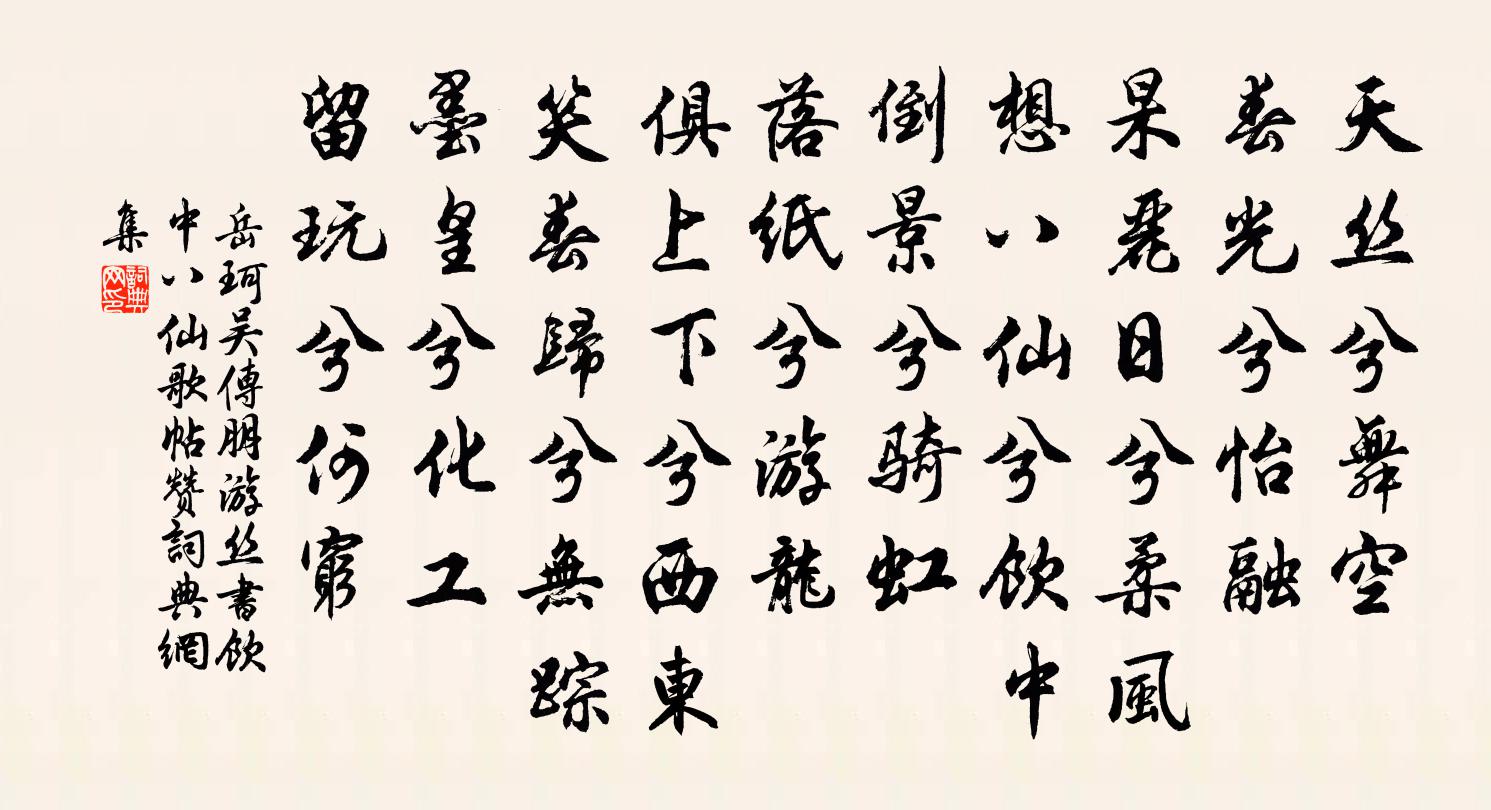 天丝兮舞空
春光兮怡融
杲麗日兮柔風
想八仙兮飲中
倒景兮騎虹
落紙兮游龍
俱上下兮西東
笑春歸兮無踪
墨皇兮化工
留玩兮何窮
岳珂吴傅朋游丝書飲
中八仙歌帖赞詞典網
集
詞典
网印